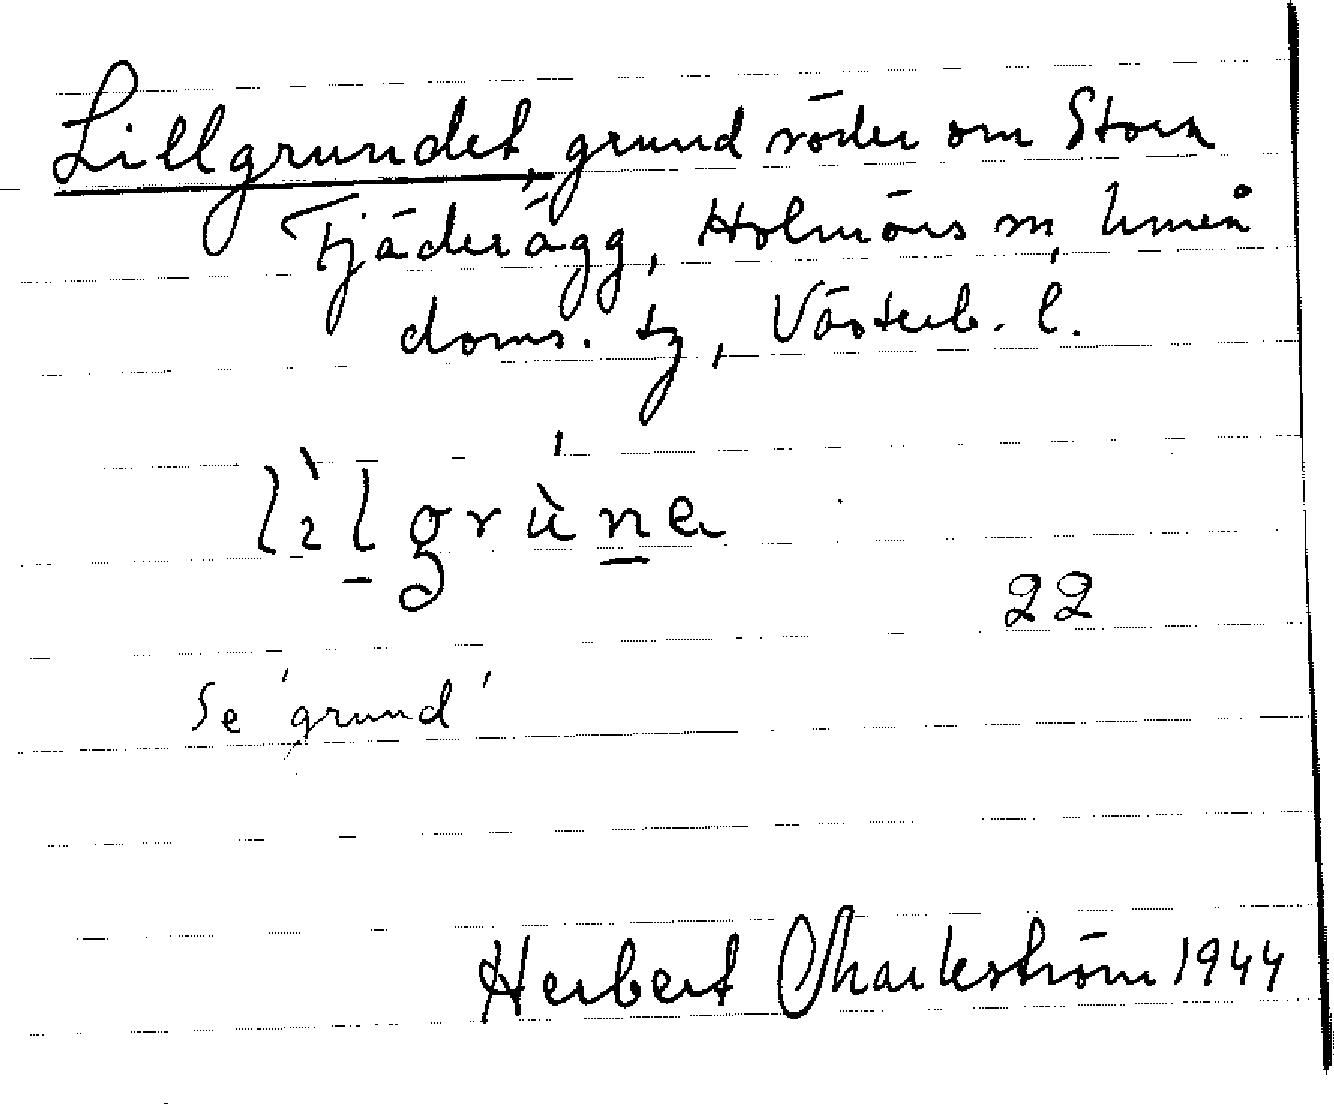 Lillgrundet, grund söder om Stora
Fjäderägg, Holmöns sn, Umeå
doms. tg, Västerb. l.
lìlgrùne
22
Se 'grund'
Herbert Markström 1944